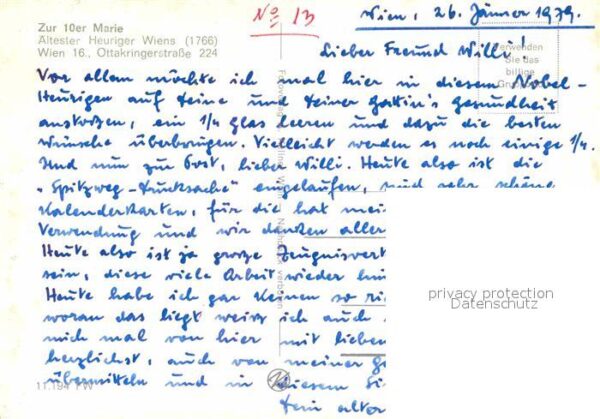 Zur 10er Marie
Ältester Heuriger Wiens (1766)
Wien 16., Ottakringerstraße 224
No 13
Wien, 26. Jänner 1979.
Lieber Freund Willi!
Verwenden
Sie das
billige
Vor allem möchte ich mal hier in diesem Nobel-
Heurigen auf Deine und Deiner Gattin's Gesundheit
anstoßen, ein 1/4 Glas leeren und dazu die besten
Wünsche überbringen. Vielleicht werden es noch einige 1/4.
Und nun zur Post, lieber Willi. Heute also ist die
"Spitzweg-Drucksache" eingelaufen, sind sehr schöne
Kalenderkarten, für die hat mei
Verwendung und wir danken aller
Heute also ist ja große Zeugnisvert
sein, diese viele Arbeit wieder hin
Heute habe ich gar keinen so ri
woran das liegt weiss ich auch
mich mal von hier mit lieben
herzlichst, auch von meiner G
übermitteln und in diesem Si
Dein alter
11.194 FW
privacy protection
Datenschutz